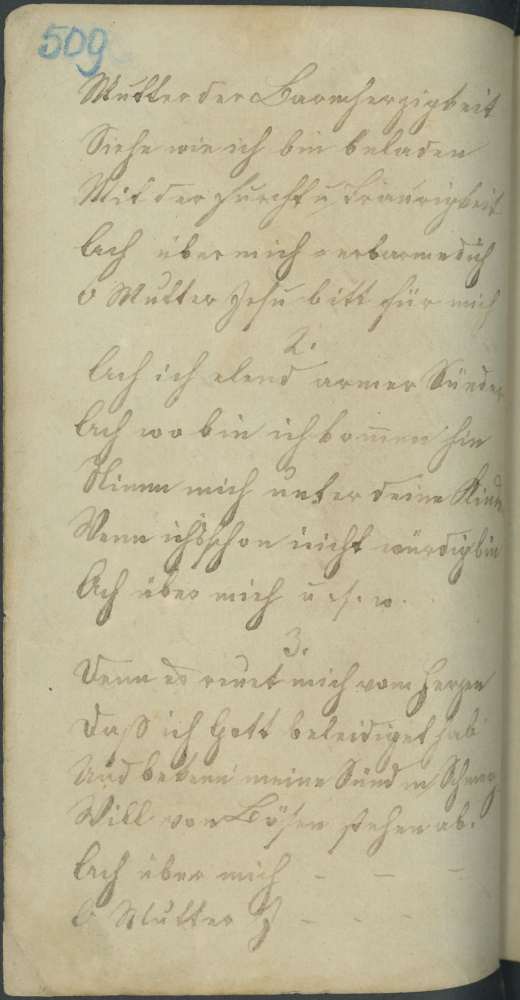 509
Mutter der Barmherzigkeit
Siehe wie ich bin beladen
Mit der Furcht u Traurigkeit
Ach über mich erbarme dich
O Mutter Jesu bitt für mich
2.
Ach ich elend armer Sünder
Ach wo bin ich kommen hin
Nimm mich unter deine Kinder
Wenn ichs schon nicht würdig bin
Ach über mich u. s. w.
3.
Denn es reuet mich vom Herzen
Daß ich Gott beleidiget hab
Und bekenn meine Sünd m Schmerz
Will von Bösen stehen ab.
Ach über mich - - -
O Mutter J - - -